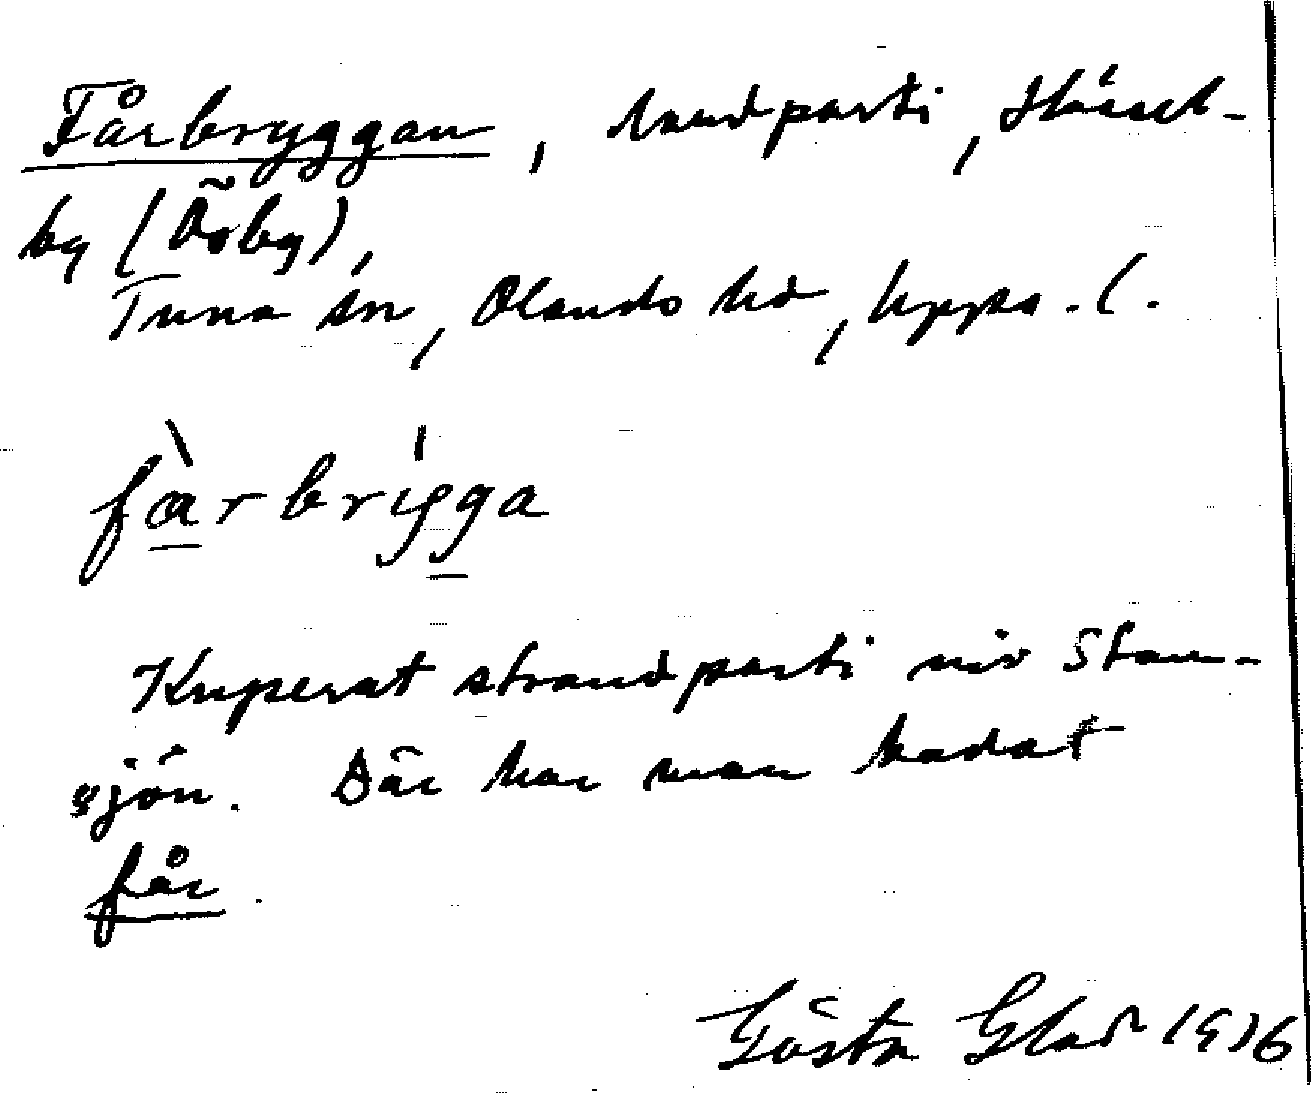 Fårbryggan, landparti, Hässel-
by (Öby),
Tuna sn, Olands hd, Upps. l.
fàrbrigga
Kuperat strandparti vid Stam-
sjön. Där har man badat
får.
Gösta Glad 1936